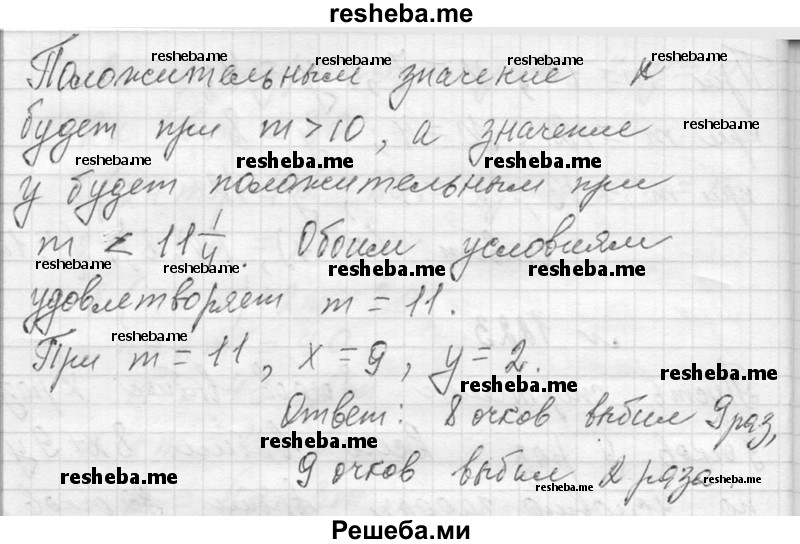 resheba.me
resheba.me resheba.me resheba.me
Положительным значение x
будет при m > 10, а значение resheba.me
resheba.me resheba.me resheba.me
y будет положительным при
m < 11 1/4. Обоим условиям
resheba.me resheba.me resheba.me resheba.me
удовлетворяет m = 11.
resheba.me
При m = 11, x = 9, y = 2.
resheba.me resheba.me
Ответ: 8 очков выбил 9 раз,
resheba.me
9 очков выбил 2 раза.
resheba.me resheba.me resheba.me
Решеба.ми